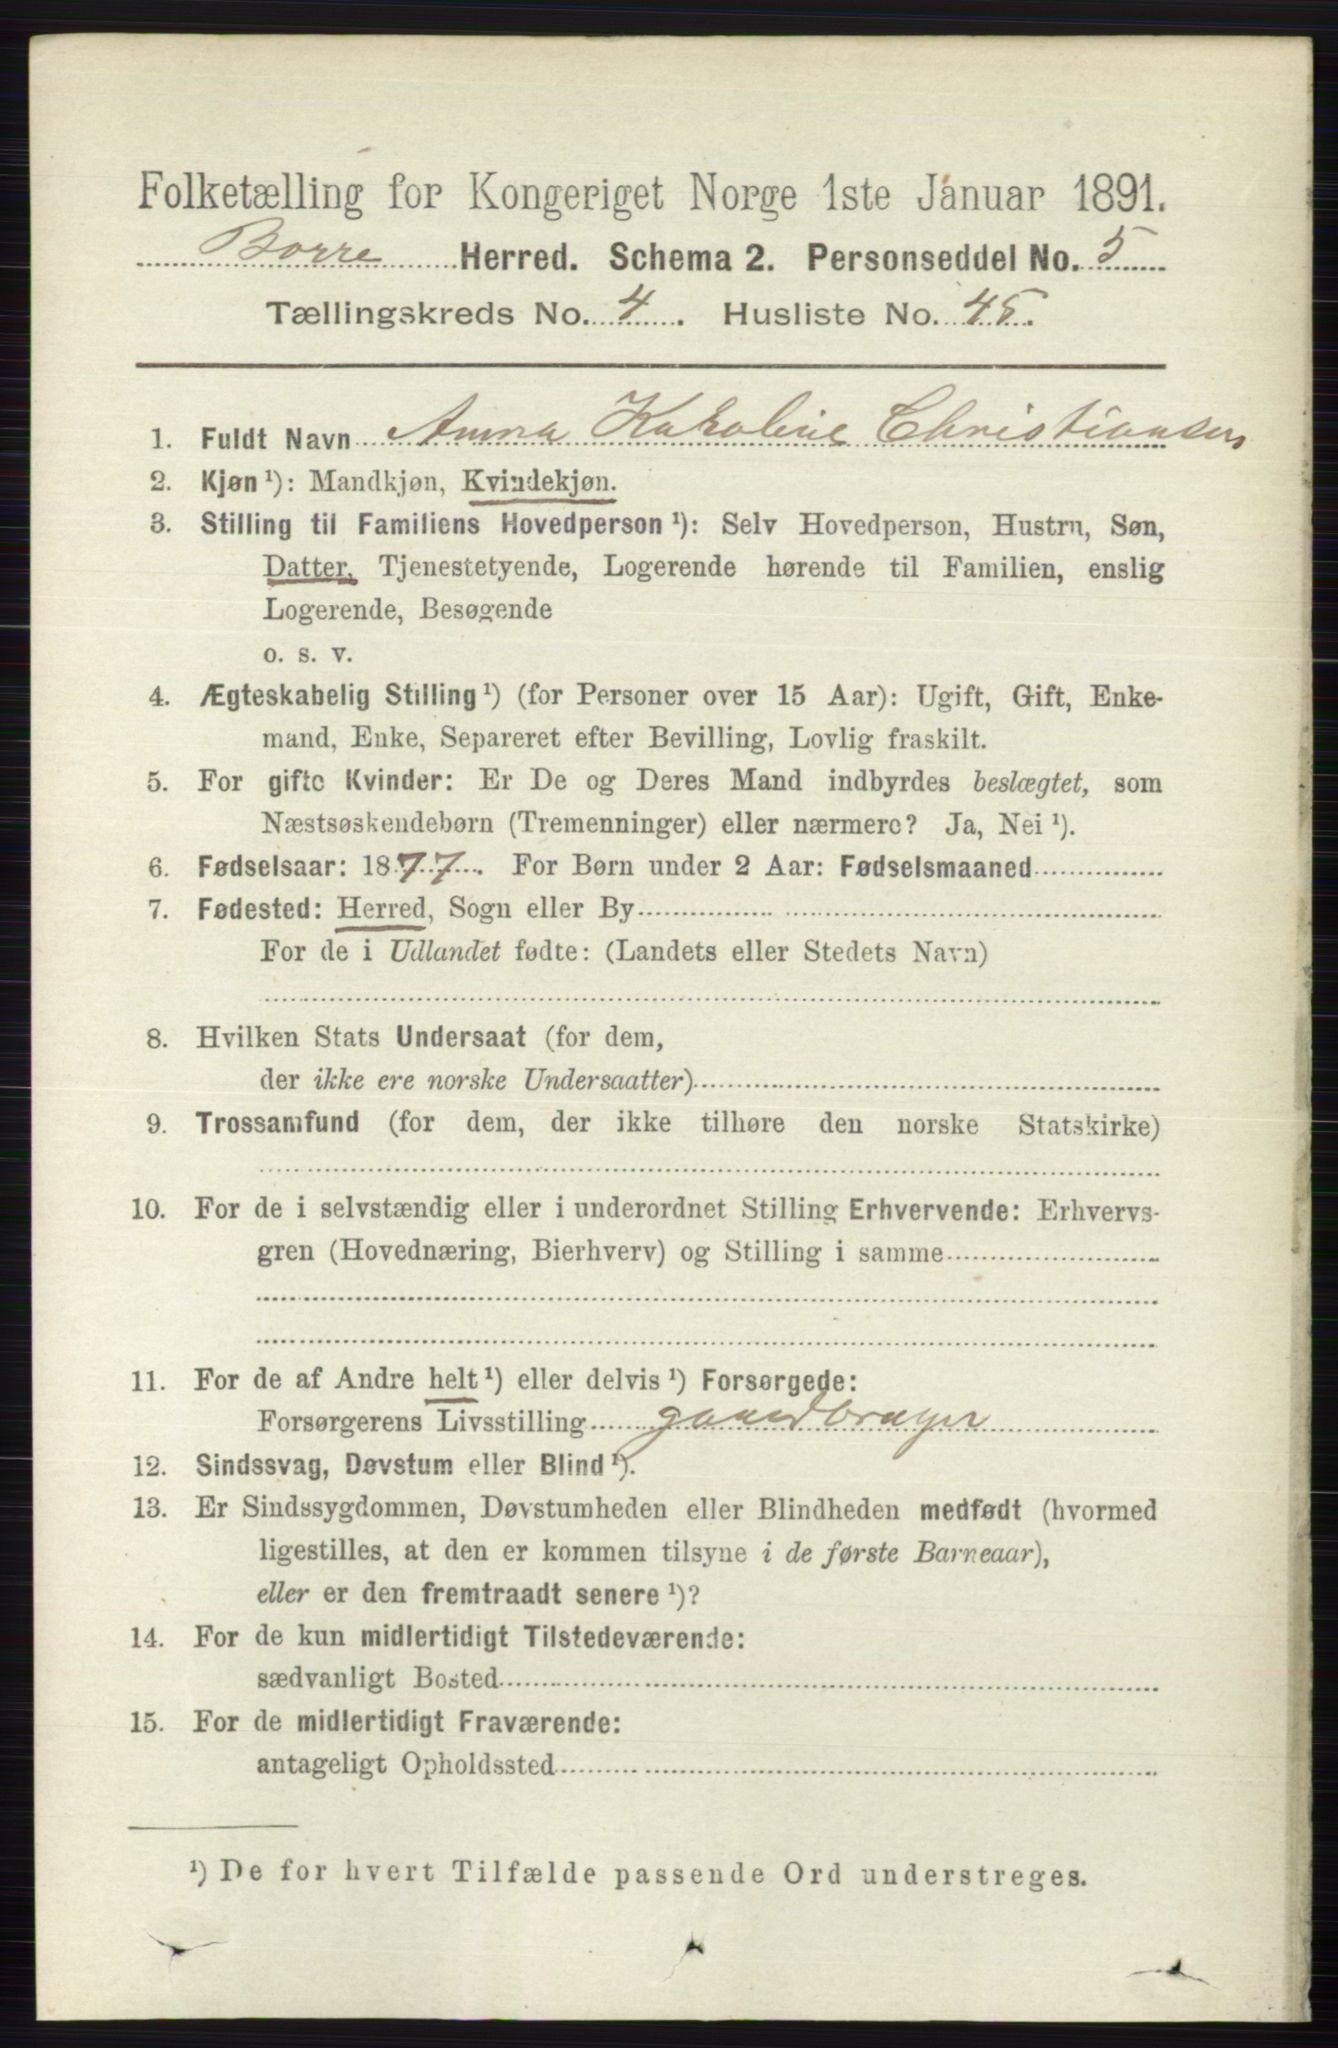 Folketælling for Kongeriget Norge 1ste Januar 1891.
Borre Herred. Schema 2. Personseddel No. 5
Tællingskreds No. 4. Husliste No. 45.
1. Fuldt Navn Anna Karoline Christiansen
2. Kjøn ¹): Mandkjøn, Kvindekjøn.
3. Stilling til Familiens Hovedperson ¹): Selv Hovedperson, Hustru, Søn,
Datter, Tjenestetyende, Logerende hørende til Familien, enslig
Logerende, Besøgende
o. s. v.
4. Ægteskabelig Stilling ¹) (for Personer over 15 Aar): Ugift, Gift, Enke-
mand, Enke, Separeret efter Bevilling, Lovlig fraskilt.
5. For gifte Kvinder: Er De og Deres Mand indbyrdes beslægtet, som
Næstsøskendebørn (Tremenninger) eller nærmere? Ja, Nei ¹).
6. Fødselsaar: 1877. For Børn under 2 Aar: Fødselsmaaned
7. Fødested: Herred, Sogn eller By
For de i Udlandet fødte: (Landets eller Stedets Navn)
8. Hvilken Stats Undersaat (for dem,
der ikke ere norske Undersaatter)
9. Trossamfund (for dem, der ikke tilhøre den norske Statskirke)
10. For de i selvstændig eller i underordnet Stilling Erhvervende: Erhvervs-
gren (Hovednæring, Bierhverv) og Stilling i samme
11. For de af Andre helt ¹) eller delvis ¹) Forsørgede:
Forsørgerens Livsstilling gaardbruger
12. Sindssvag, Døvstum eller Blind ¹).
13. Er Sindssygdommen, Døvstumheden eller Blindheden medfødt (hvormed
ligestilles, at den er kommen tilsyne i de første Barneaar),
eller er den fremtraadt senere ¹)?
14. For de kun midlertidigt Tilstedeværende:
sædvanligt Bosted
15. For de midlertidigt Fraværende:
antageligt Opholdssted
¹) De for hvert Tilfælde passende Ord understreges.